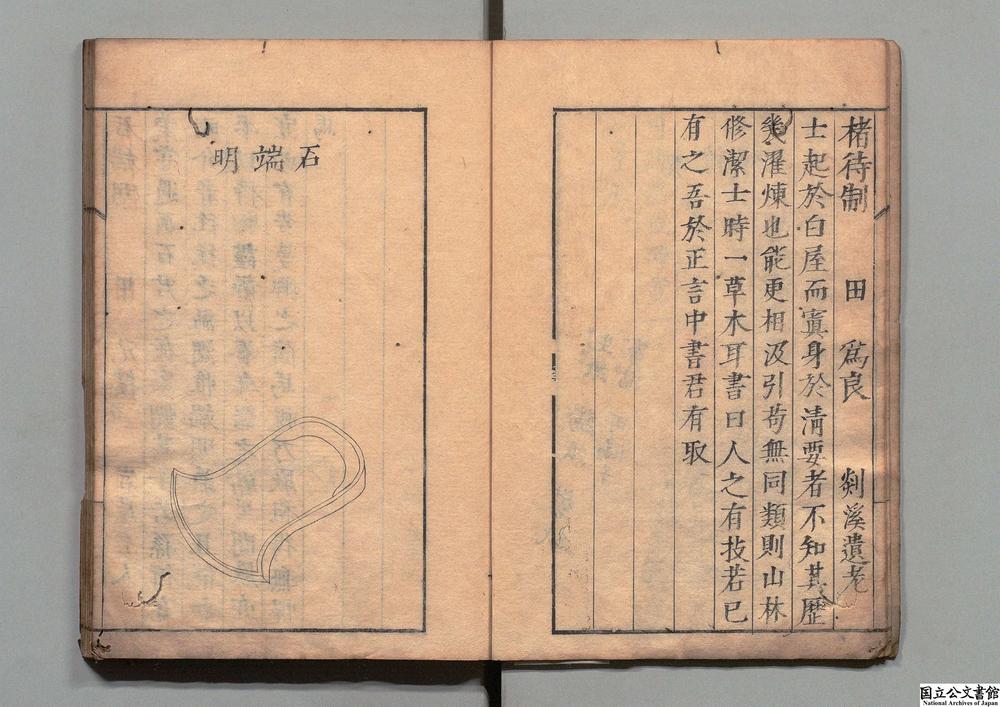 楮待制　田　爲良　剡溪遺老
士起於白屋而寘身於清要者不知其歷
幾濯煉也能更相汲引苟無同類則山林
修潔士時一草木耳書曰人之有技若已
有之吾於正言中書君有取
石端明
国立公文書館
National Archives of Japan